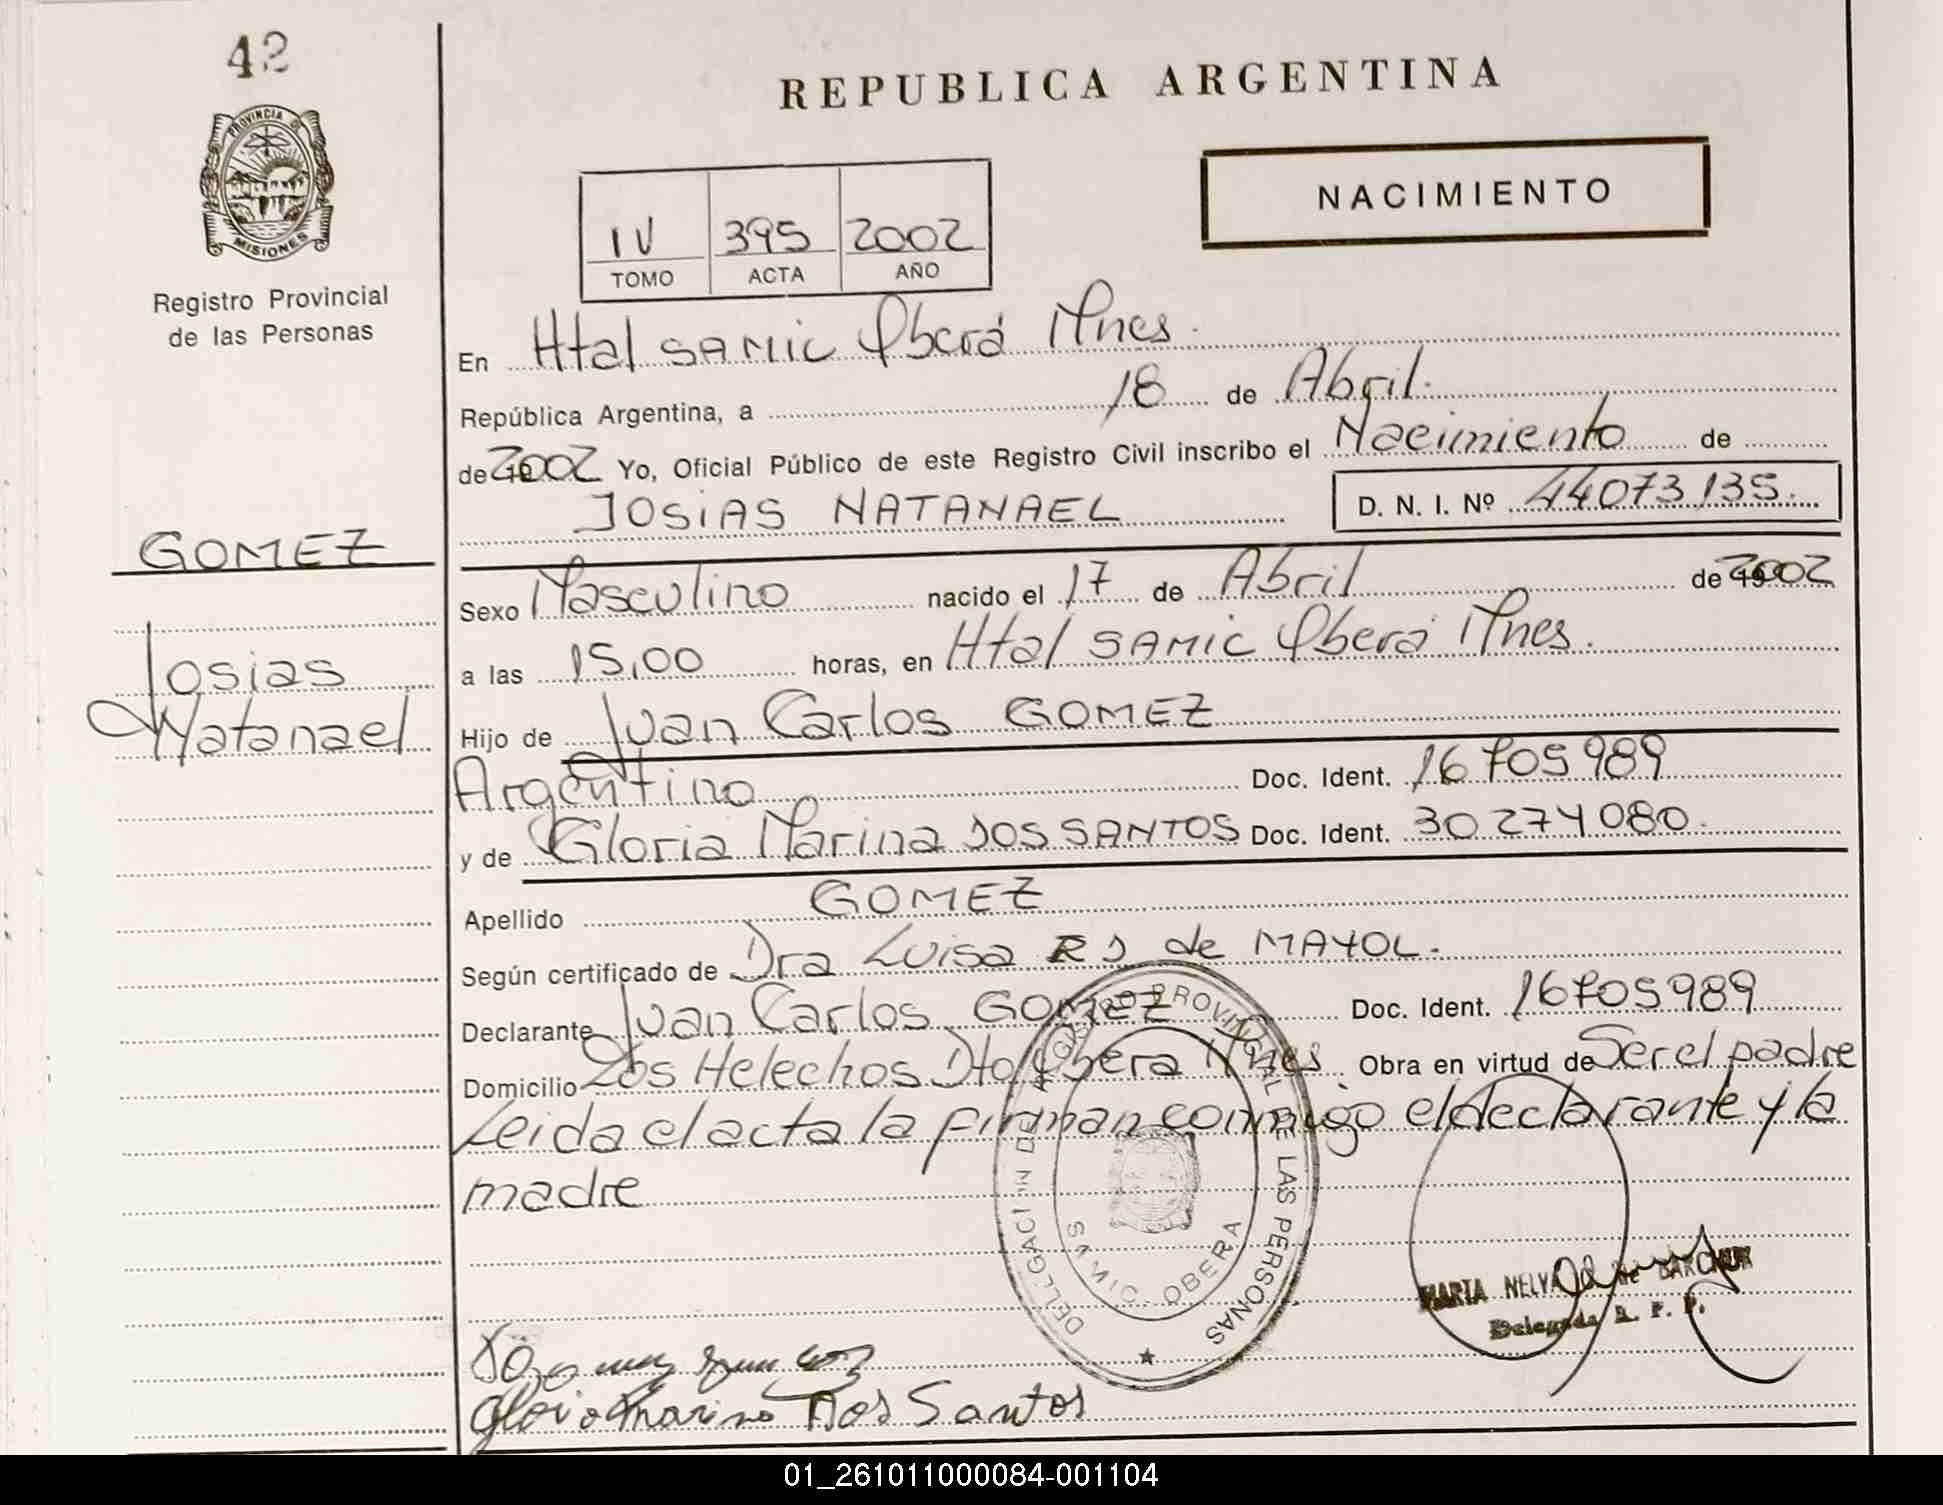 42
REPUBLICA ARGENTINA
PROVINCIA DE
MISIONES
NACIMIENTO
IV 395 2002
TOMO ACTA AÑO
Registro Provincial
de las Personas
En Htal SAMIC Oberá Mnes.
República Argentina, a 18 de Abril.
de 2002 Yo, Oficial Público de este Registro Civil inscribo el Nacimiento de
JOSIAS NATANAEL D. N. I. Nº 44073135.
GOMEZ
Josias
Natanael
Sexo Masculino nacido el 17 de Abril de 2002
a las 15,00 horas, en Htal SAMIC Oberá Mnes.
Hijo de Juan Carlos GOMEZ
Argentino Doc. Ident. 16705989
y de Gloria Marina DOS SANTOS Doc. Ident. 30274080.
Apellido GOMEZ
Según certificado de Dra Luisa R D de MAYOL.
Declarante Juan Carlos GOMEZ Doc. Ident. 16705989
Domicilio Los Helechos Dto Obera Mnes. Obra en virtud de Ser el padre
Leida el acta la firman conmigo el declarante y la
madre
DELEGACION DE REGISTRO PROVINCIAL DE LAS PERSONAS
SAMIC. OBERA
MARTA NELVA de
Delegada R. P. P.
Gloria Marina Dos Santos
01_261011000084-001104